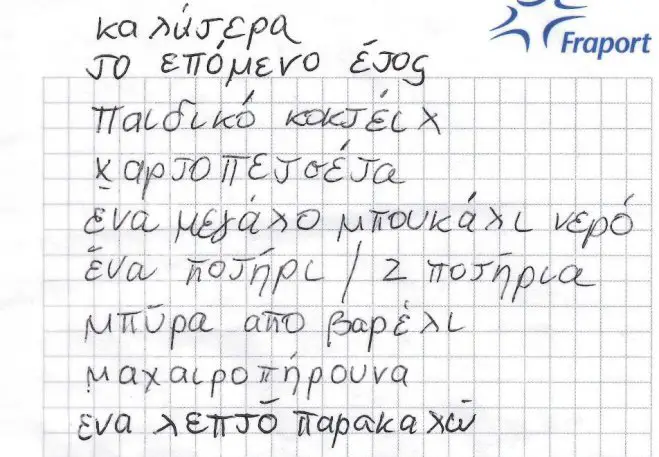 καλύτερα
Fraport
το επόμενο έτος
Παιδικό κοκτέιλ
χαρτοπετσέτα
ένα μεγάλο μπουκάλι νερό
ένα ποτήρι / 2 ποτήρια
μπύρα από βαρέλι
μαχαιροπήρουνα
ένα λεπτό παρακαλώ